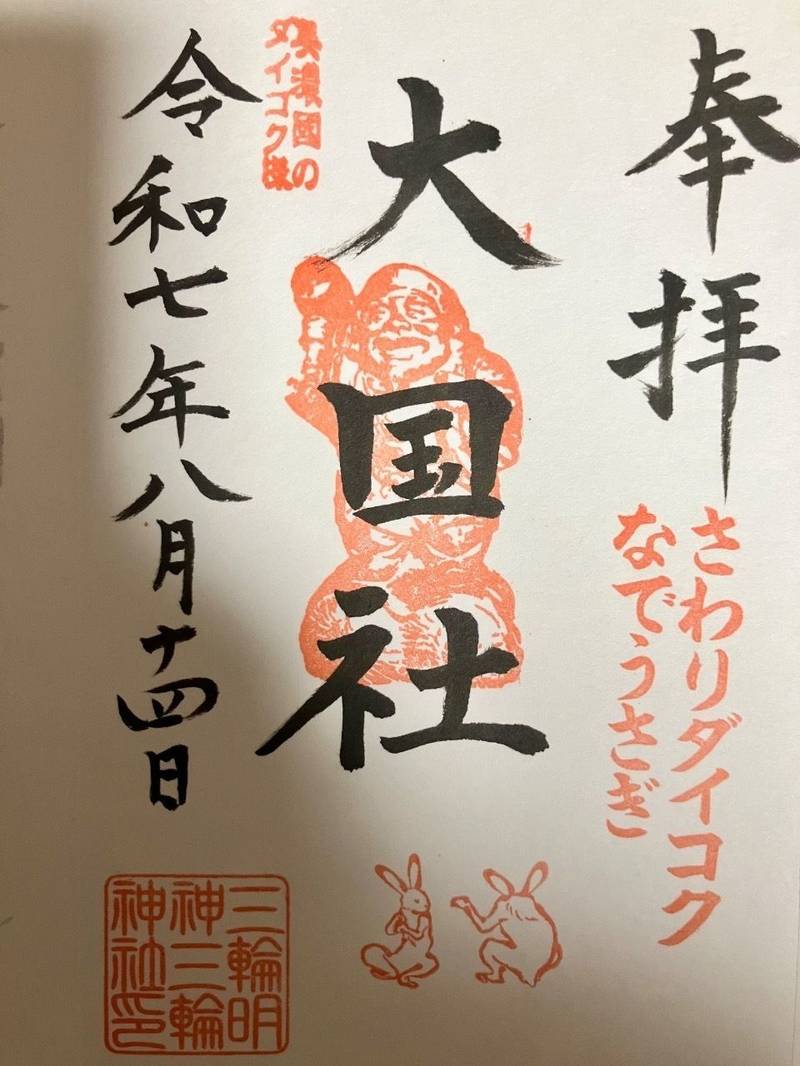 奉拝
さわりダイコク
なでうさぎ
大国社
美濃國の
ダイコク様
令和七年八月十四日
三輪明
神三輪
神社印